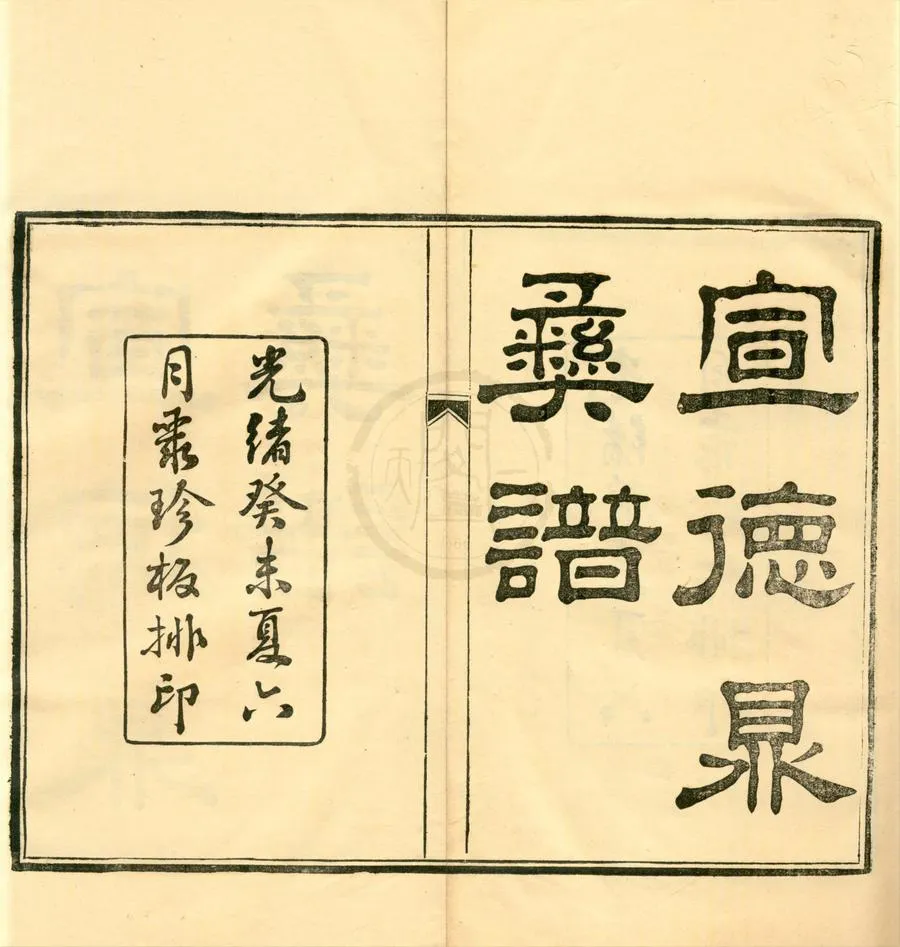 宣德鼎
彝譜
光緒癸未夏六
月聚珍板排印